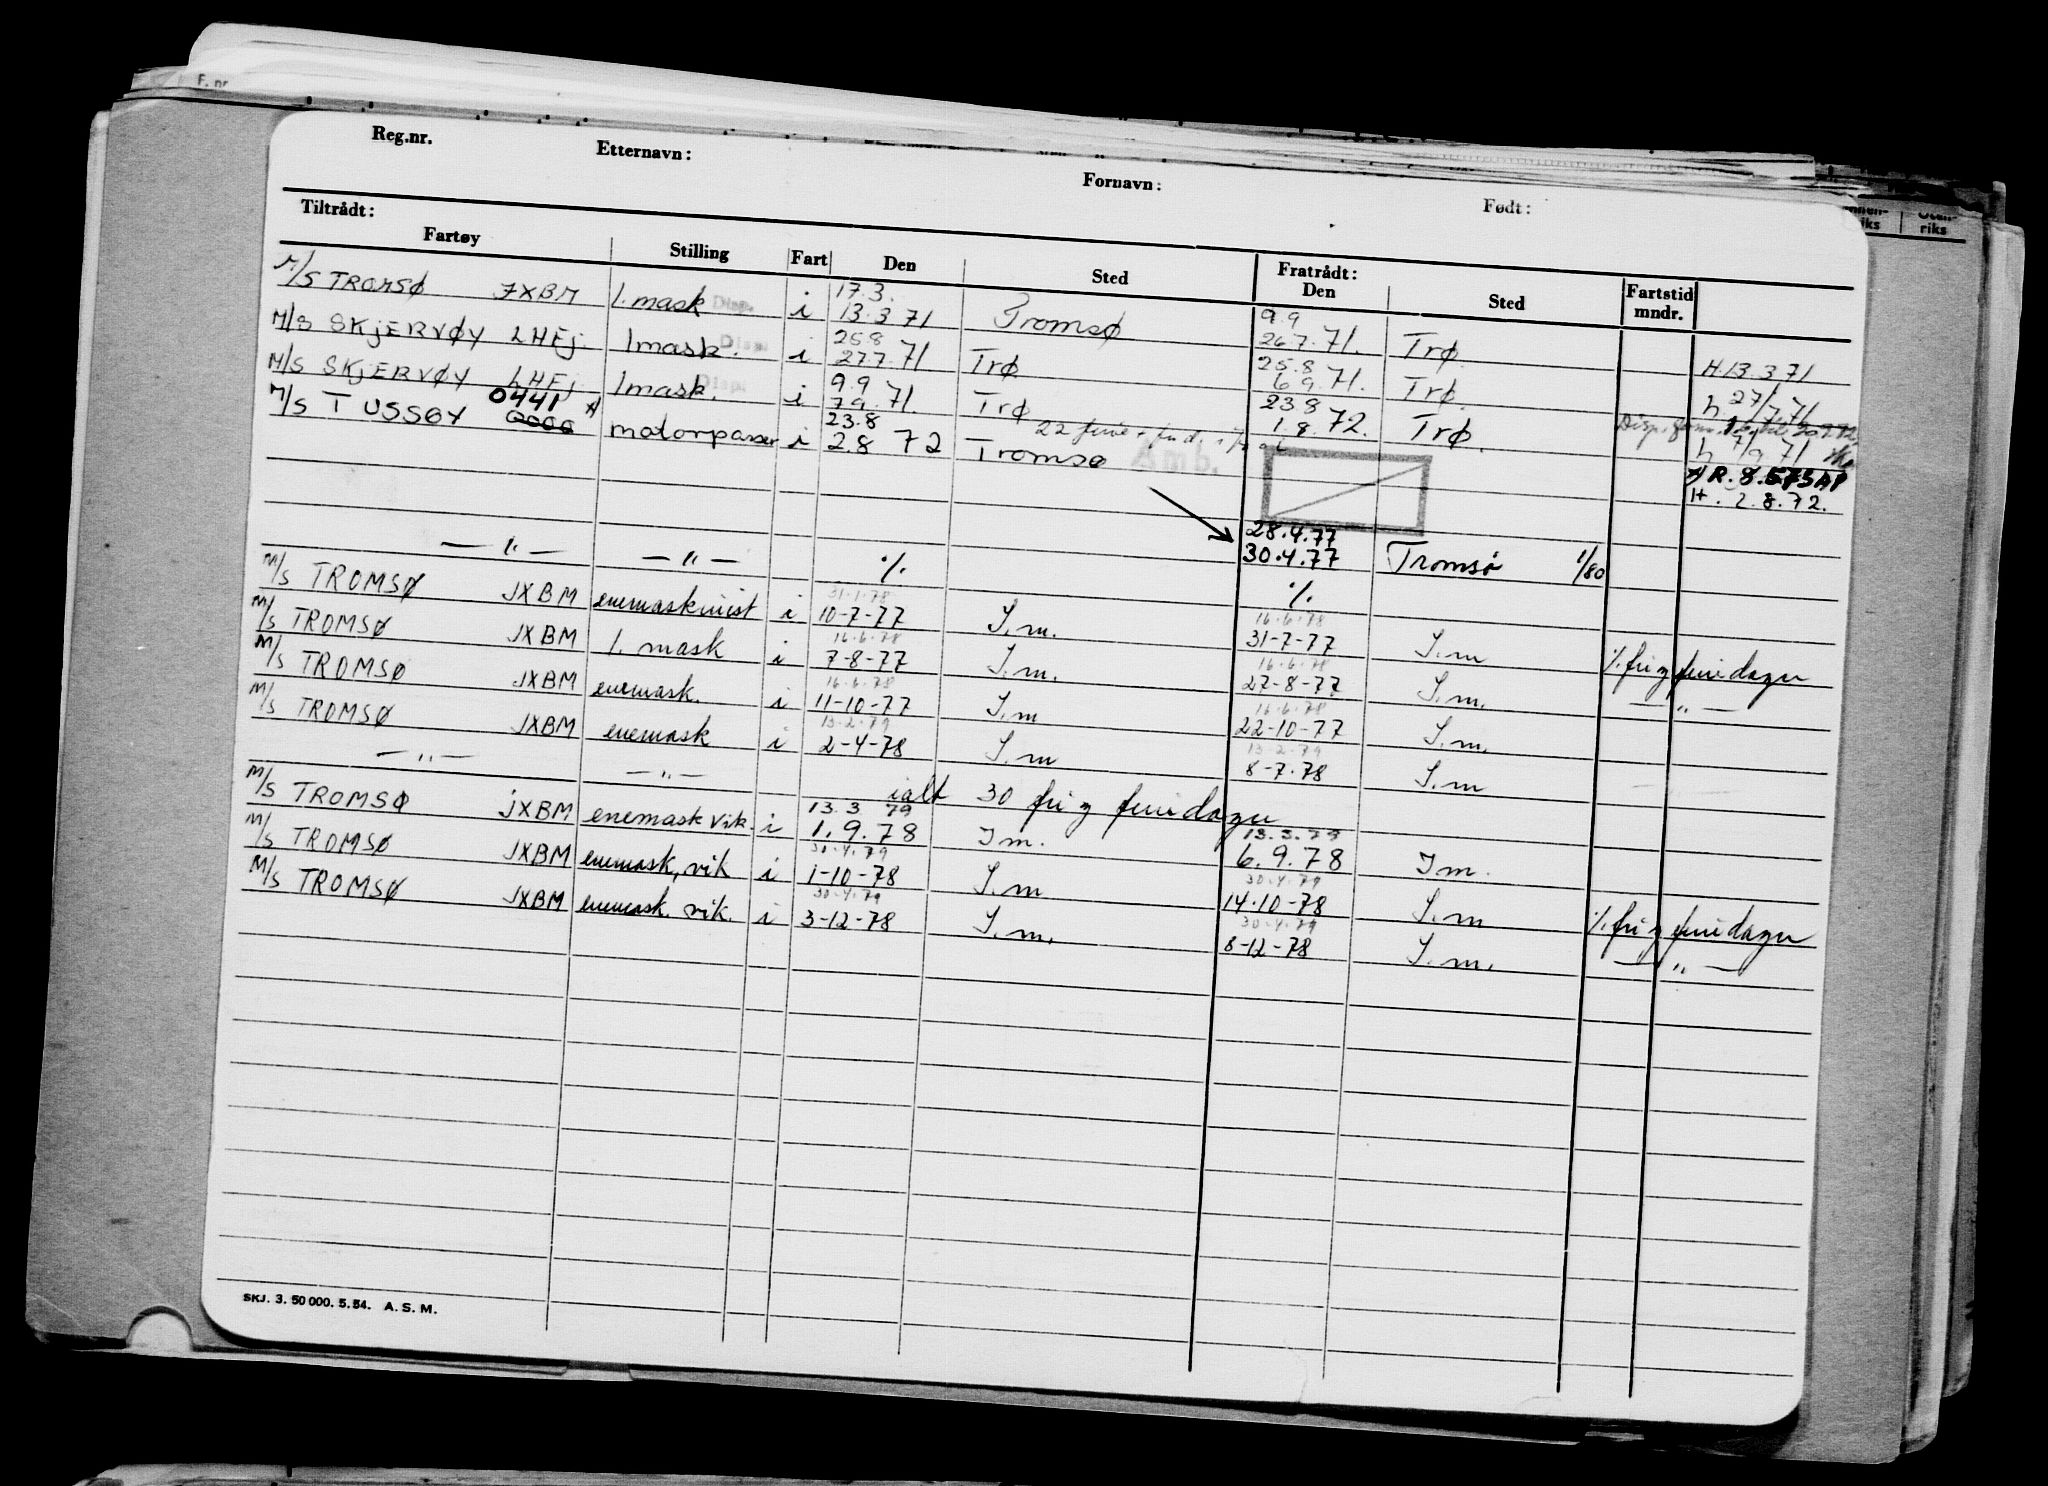 F. nr
Reg.nr. Etternavn: Fornavn: Født:
Tiltrådt: Fratrådt:
Fartøy Stilling Fart Den Sted Den Sted Fartstid mndr.
riks riks
17.3. 9.9
M/S TROMSØ JXBM 1. mask Disp. i 13.3 71 Tromsø 26.7.71. Trø. H.13.3.71
25.8 25.8
M/S SKJERVØY LHEJ 1mask. Disp. i 27.7.71 Trø 6.9.71. Trø. h 27/7.71
9.9 23.8
M/S SKJERVØY LHEJ 1mask. Disp. i 7.9.71. Trø 1.8.72. Trø. h 7/9 71
0441 23.8
M/S TUSSØY motorpasser i 2.8 72 Tromsø Amb. R.8.573AP
H. 2.8.72.
28.4.77
30.4.77 Tromsø 1/80
— " — — " — %. %.
31.1.78 16.6.78
M/S TROMSØ JXBM enemaskinist i 10-7-77 S.m. 31-7-77 S.m %. fri og feriedager
16.6.78 16.6.78
M/S TROMSØ JXBM 1. mask i 7-8-77 S.m. 27-8-77 S.m. — " —
16.6.78 16.6.78
M/S TROMSØ JXBM enemask. i 11-10-77 S.m 22-10-77 S.m.
13.2.79 13.2.79
M/S TROMSØ JXBM enemask i 2-4-78 S.m 8-7-78 S.m
— " — — " — ialt 30 fri og feriedager
13.3 79 13.3.79
M/S TROMSØ JXBM enemask vik. i 1.9.78 Sm. 6.9.78 Sm.
30.4.79 30.4.79
M/S TROMSØ JXBM enemask, vik i 1-10-78 S.m 14-10-78 S.m %. fri og feriedager
30.4.79 30.4.79
M/S TROMSØ JXBM enemask. vik. i 3-12-78 S.m. 8-12-78 S.m. — " —
SKJ. 3. 50 000. 5. 54. A. S. M.